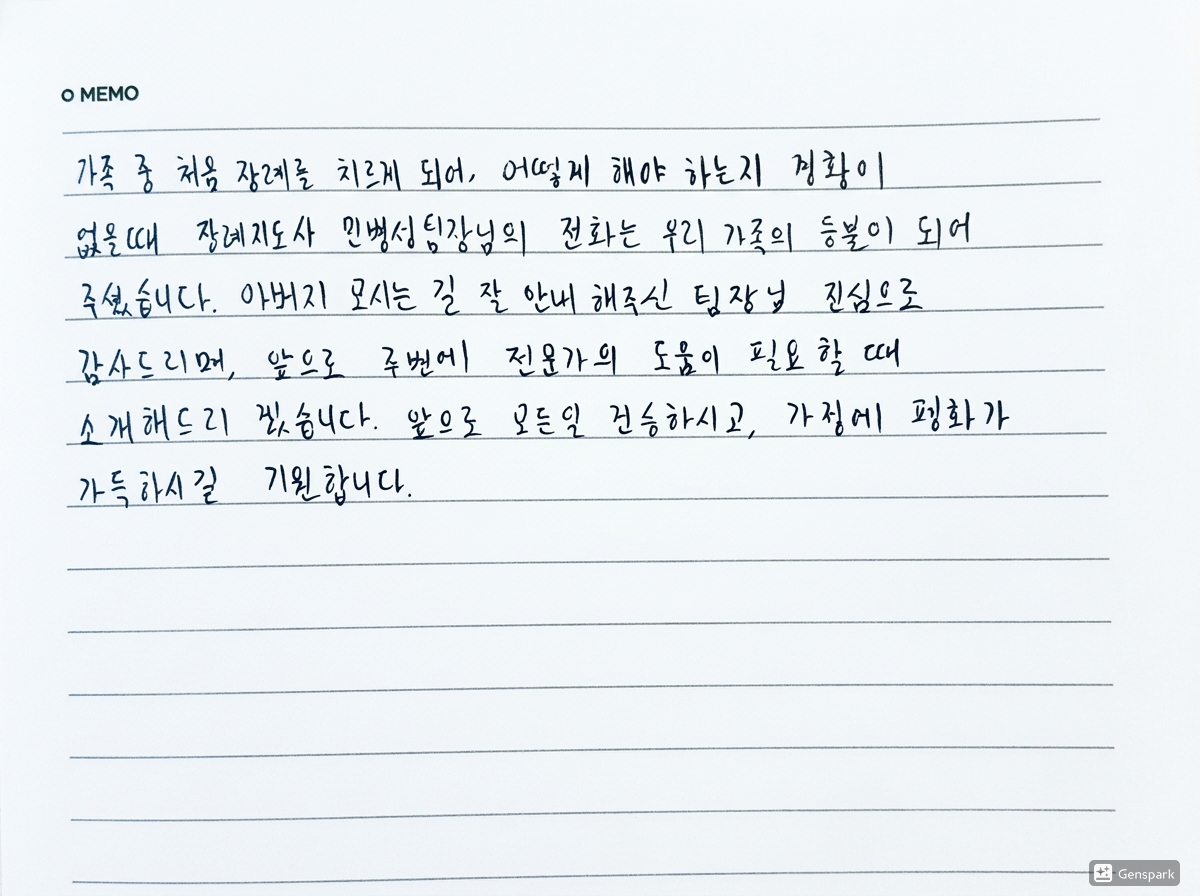 MEMO
가족 중 처음 장례를 치르게 되어, 어떻게 해야 하는지 경황이
없을때 장례지도사 민병성팀장님의 전화는 우리 가족의 등불이 되어
주셨습니다. 아버지 모시는 길 잘 안내 해주신 팀장님 진심으로
감사드리며, 앞으로 주변에 전문가의 도움이 필요할 때
소개해드리 겠습니다. 앞으로 모든일 건승하시고, 가정에 평화가
가득하시길 기원합니다.
Genspark